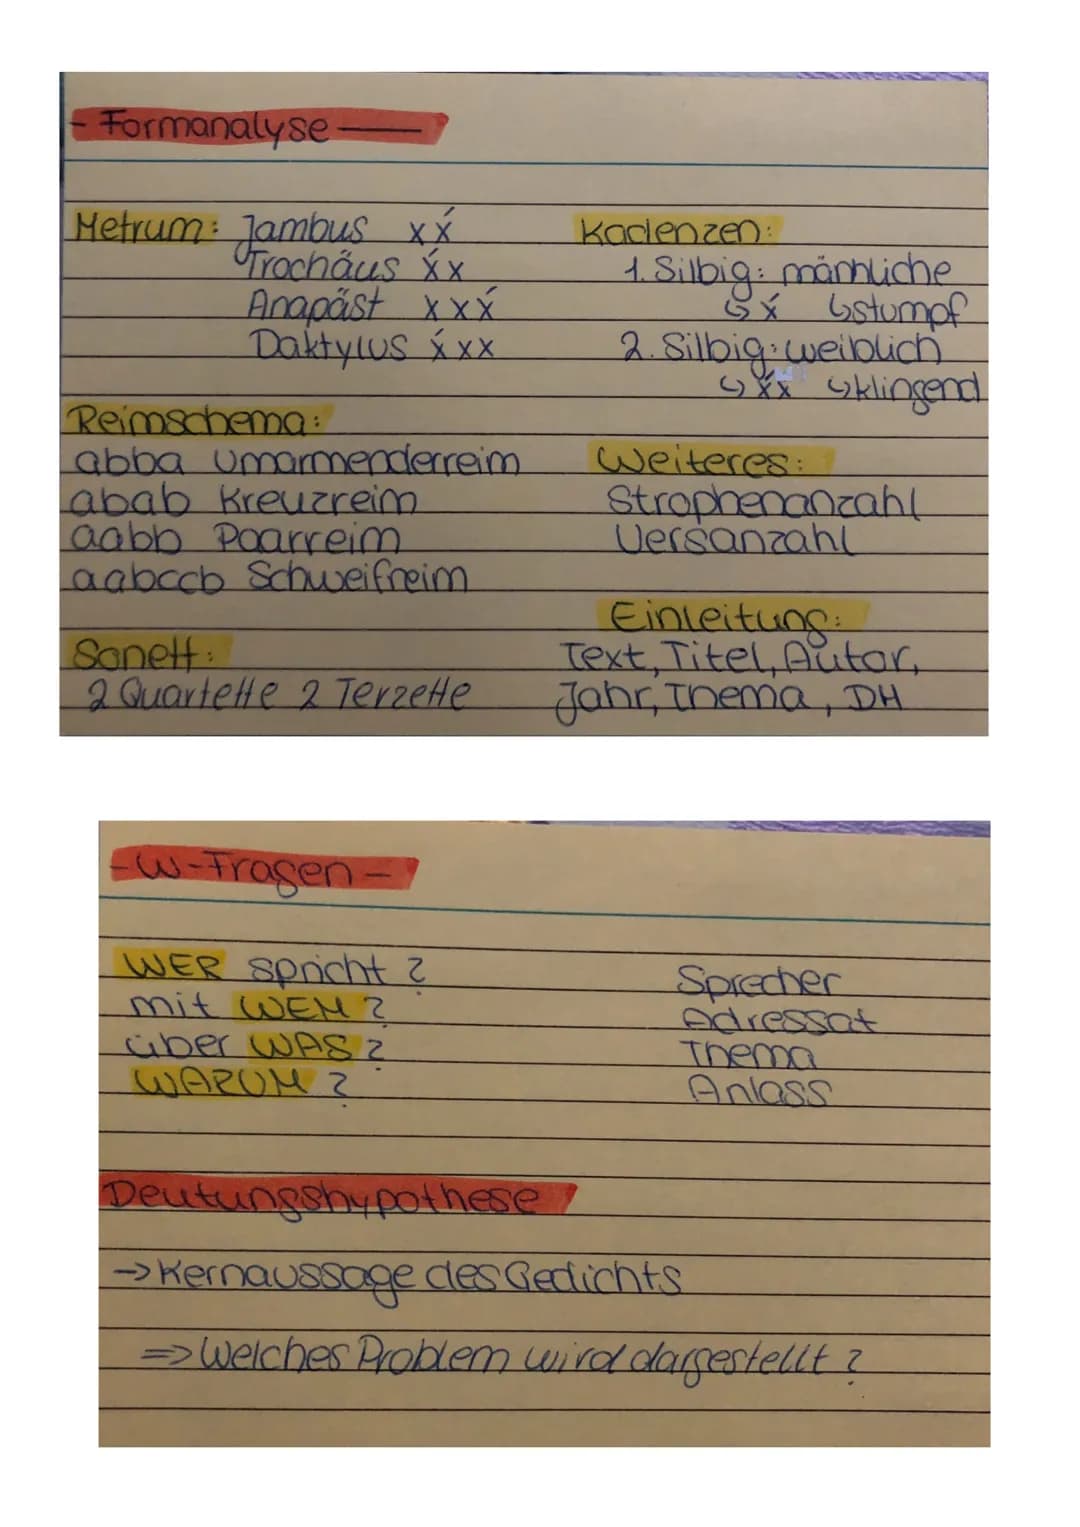 - Formanalyse -
Metrum: Jambus x x́
Trochäus x́ x
Anapäst x x x́
Daktylus x́ x x
Reimschema:
abba Umarmenderreim
abab Kreuzreim
aabb Paarreim
aabccb Schweifreim
Sonett:
2 Quartette 2 Terzette
Kadenzen:
1. Silbig: männliche
↳ x́ ↳ stumpf
2. Silbig: weiblich
↳ x́x ↳ klingend
Weiteres:
Strophenanzahl
Versanzahl
Einleitung:
Text, Titel, Autor,
Jahr, Thema, DH
- W-Fragen -
WER spricht? Sprecher
mit WEM? Adressat
über WAS? Thema
WARUM? Anlass
Deutungshypothese
→ Kernaussage des Gedichts
⇒ Welches Problem wird dargestellt?